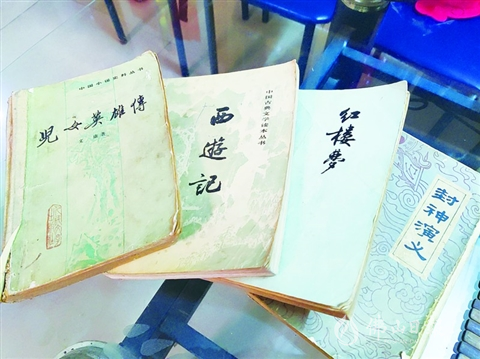 中国小说史料丛书
兒女英雄傳
文康著
中国古典文学读本丛书
西遊記
红楼夢
封神演义